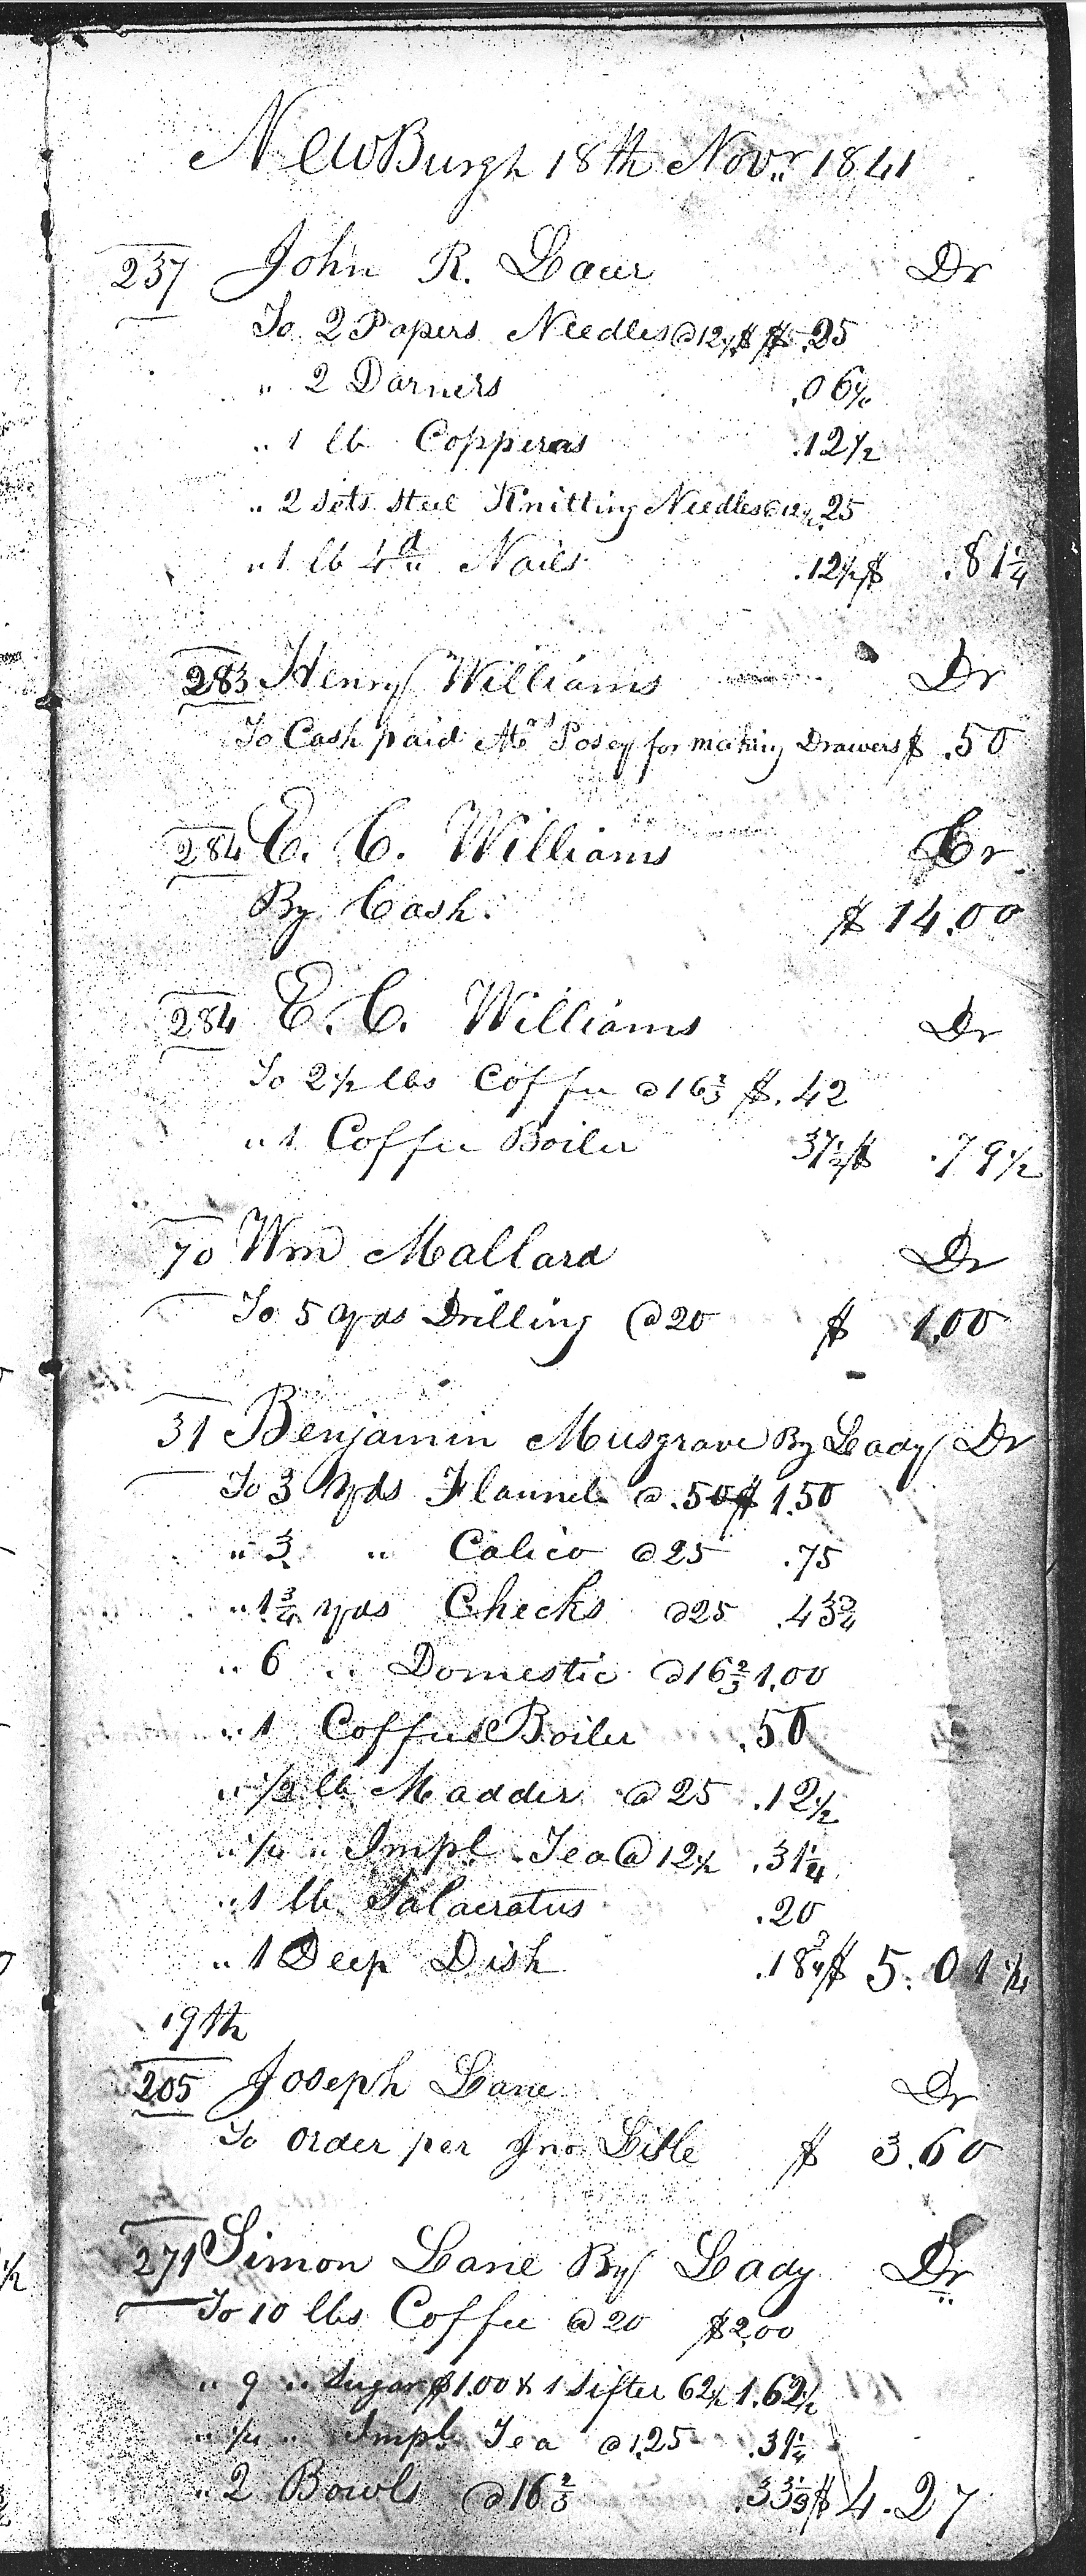 NewBurgh 18th Novr 1841
237 John R. Laur Dr
To 2 Papers Needles @ 12½ $ .25
" 2 Darners .06¼
" 1 lb Copperas .12½
" 2 Sets Steel Knitting Needles @ 12½ .25
" 1 lb 4d Nails .12½ $ .81¼
283 Henry Williams Dr
To Cash paid Mrs Posey for making Drawers $ .50
284 E. C. Williams Cr
By Cash $ 14.00
284 E. C. Williams Dr
To 2½ lbs Coffee @ 16⅔ $ .42
" 1 Coffee Boiler 37½ $ .79½
70 Wm Mallard Dr
To 5 Yds Drilling @ 20 $ 1.00
31 Benjamin Musgrave By Lady Dr
To 3 Yds Flannel @ .50 $ 1.50
" 3 " Calico @ 25 .75
" 1¾ yds Checks @ 25 .43¾
" 6 " Domestic @ 16⅔ 1.00
" 1 Coffee Boiler .50
" ½ lb Madder @ 25 .12½
" ¼ " Impl Tea @ 12½ .31¼
" 1 lb Salaeratus .20
" 1 Deep Dish .18¾ $ 5.01¼
19th
205 Joseph Lane Dr
To order per Jno Lisle $ 3.60
271 Simon Lane By Lady Dr
To 10 lbs Coffee @ 20 $2.00
" 9 " Sugar $1.00 & 1 Sifter 62½ 1.62½
" ¼ " Impl Tea @ 1.25 .31¼
" 2 Bowls @ 16⅔ .33⅓ $ 4.27